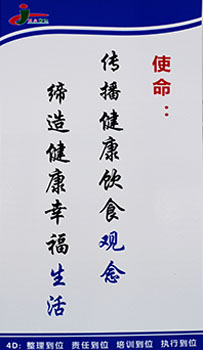 使命：
传播健康饮食观念
缔造健康幸福生活
4D：整理到位 责任到位 培训到位 执行到位